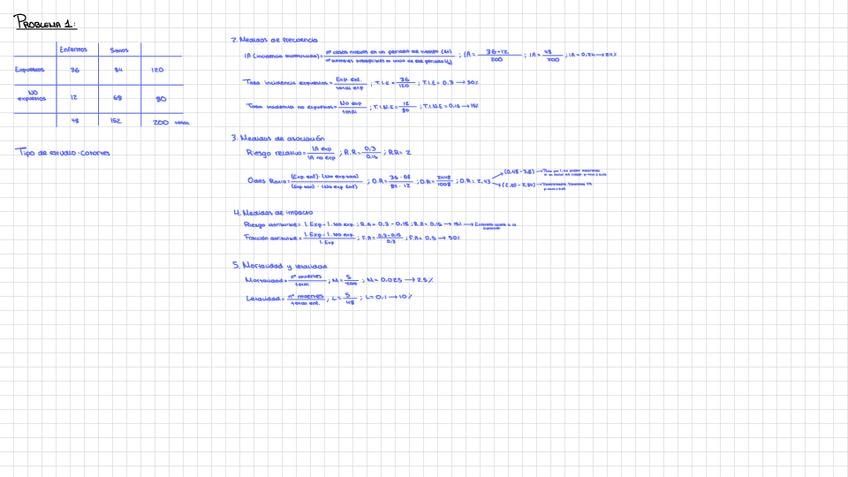 PROBLEMA 1:
Enfermos Sanos
Expuestos 36 84 120
NO expuestos 12 68 80
48 152 200 total
Tipo de estudio: cohortes
2. Medidas de frecuencia
IA (incidencia acumulada) = nº casos nuevos en un periodo de tiempo / ; IA = 36+12 / 200 ; IA = 48 / 200 ; IA = 0,24 → 24%
Tasa incidencia expuestos = Exp enf. / total exp ; T.I.E = 36 / 120 ; T.I.E = 0.3 → 30%
Tasa incidencia no expuestos = No exp / total ; T.I.N.E = 12 / 80 ; T.I.N.E = 0.15 → 15%
3. Medidas de asociación
Riesgo relativo = IA exp / IA no exp ; R.R = 0.3 / 0.15 ; RR = 2
Odds Ratio = (Exp enf) · (No exp san) / (Exp san) · (No exp enf) ; O.R = 36 · 68 / 84 · 12 ; O.R = 2448 / 1008 ; O.R = 2,43
4. Medidas de impacto
Riesgo atribuible = I. Exp - I. No exp ; R.A = 0.3 - 0.15 ; R.A = 0.15 → 15%
Fracción atribuible = I. Exp - I. No exp / I. Exp ; F.A = 0.3-0.15 / 0.3 ; F.A = 0.5 → 50%
5. Mortalidad y letalidad
Mortalidad = nº muertes / total ; M = 5 / 200 ; M = 0.025 → 2.5%
Letalidad = nº muertes / total enf. ; L = 5 / 48 ; L = 0.1 → 10%